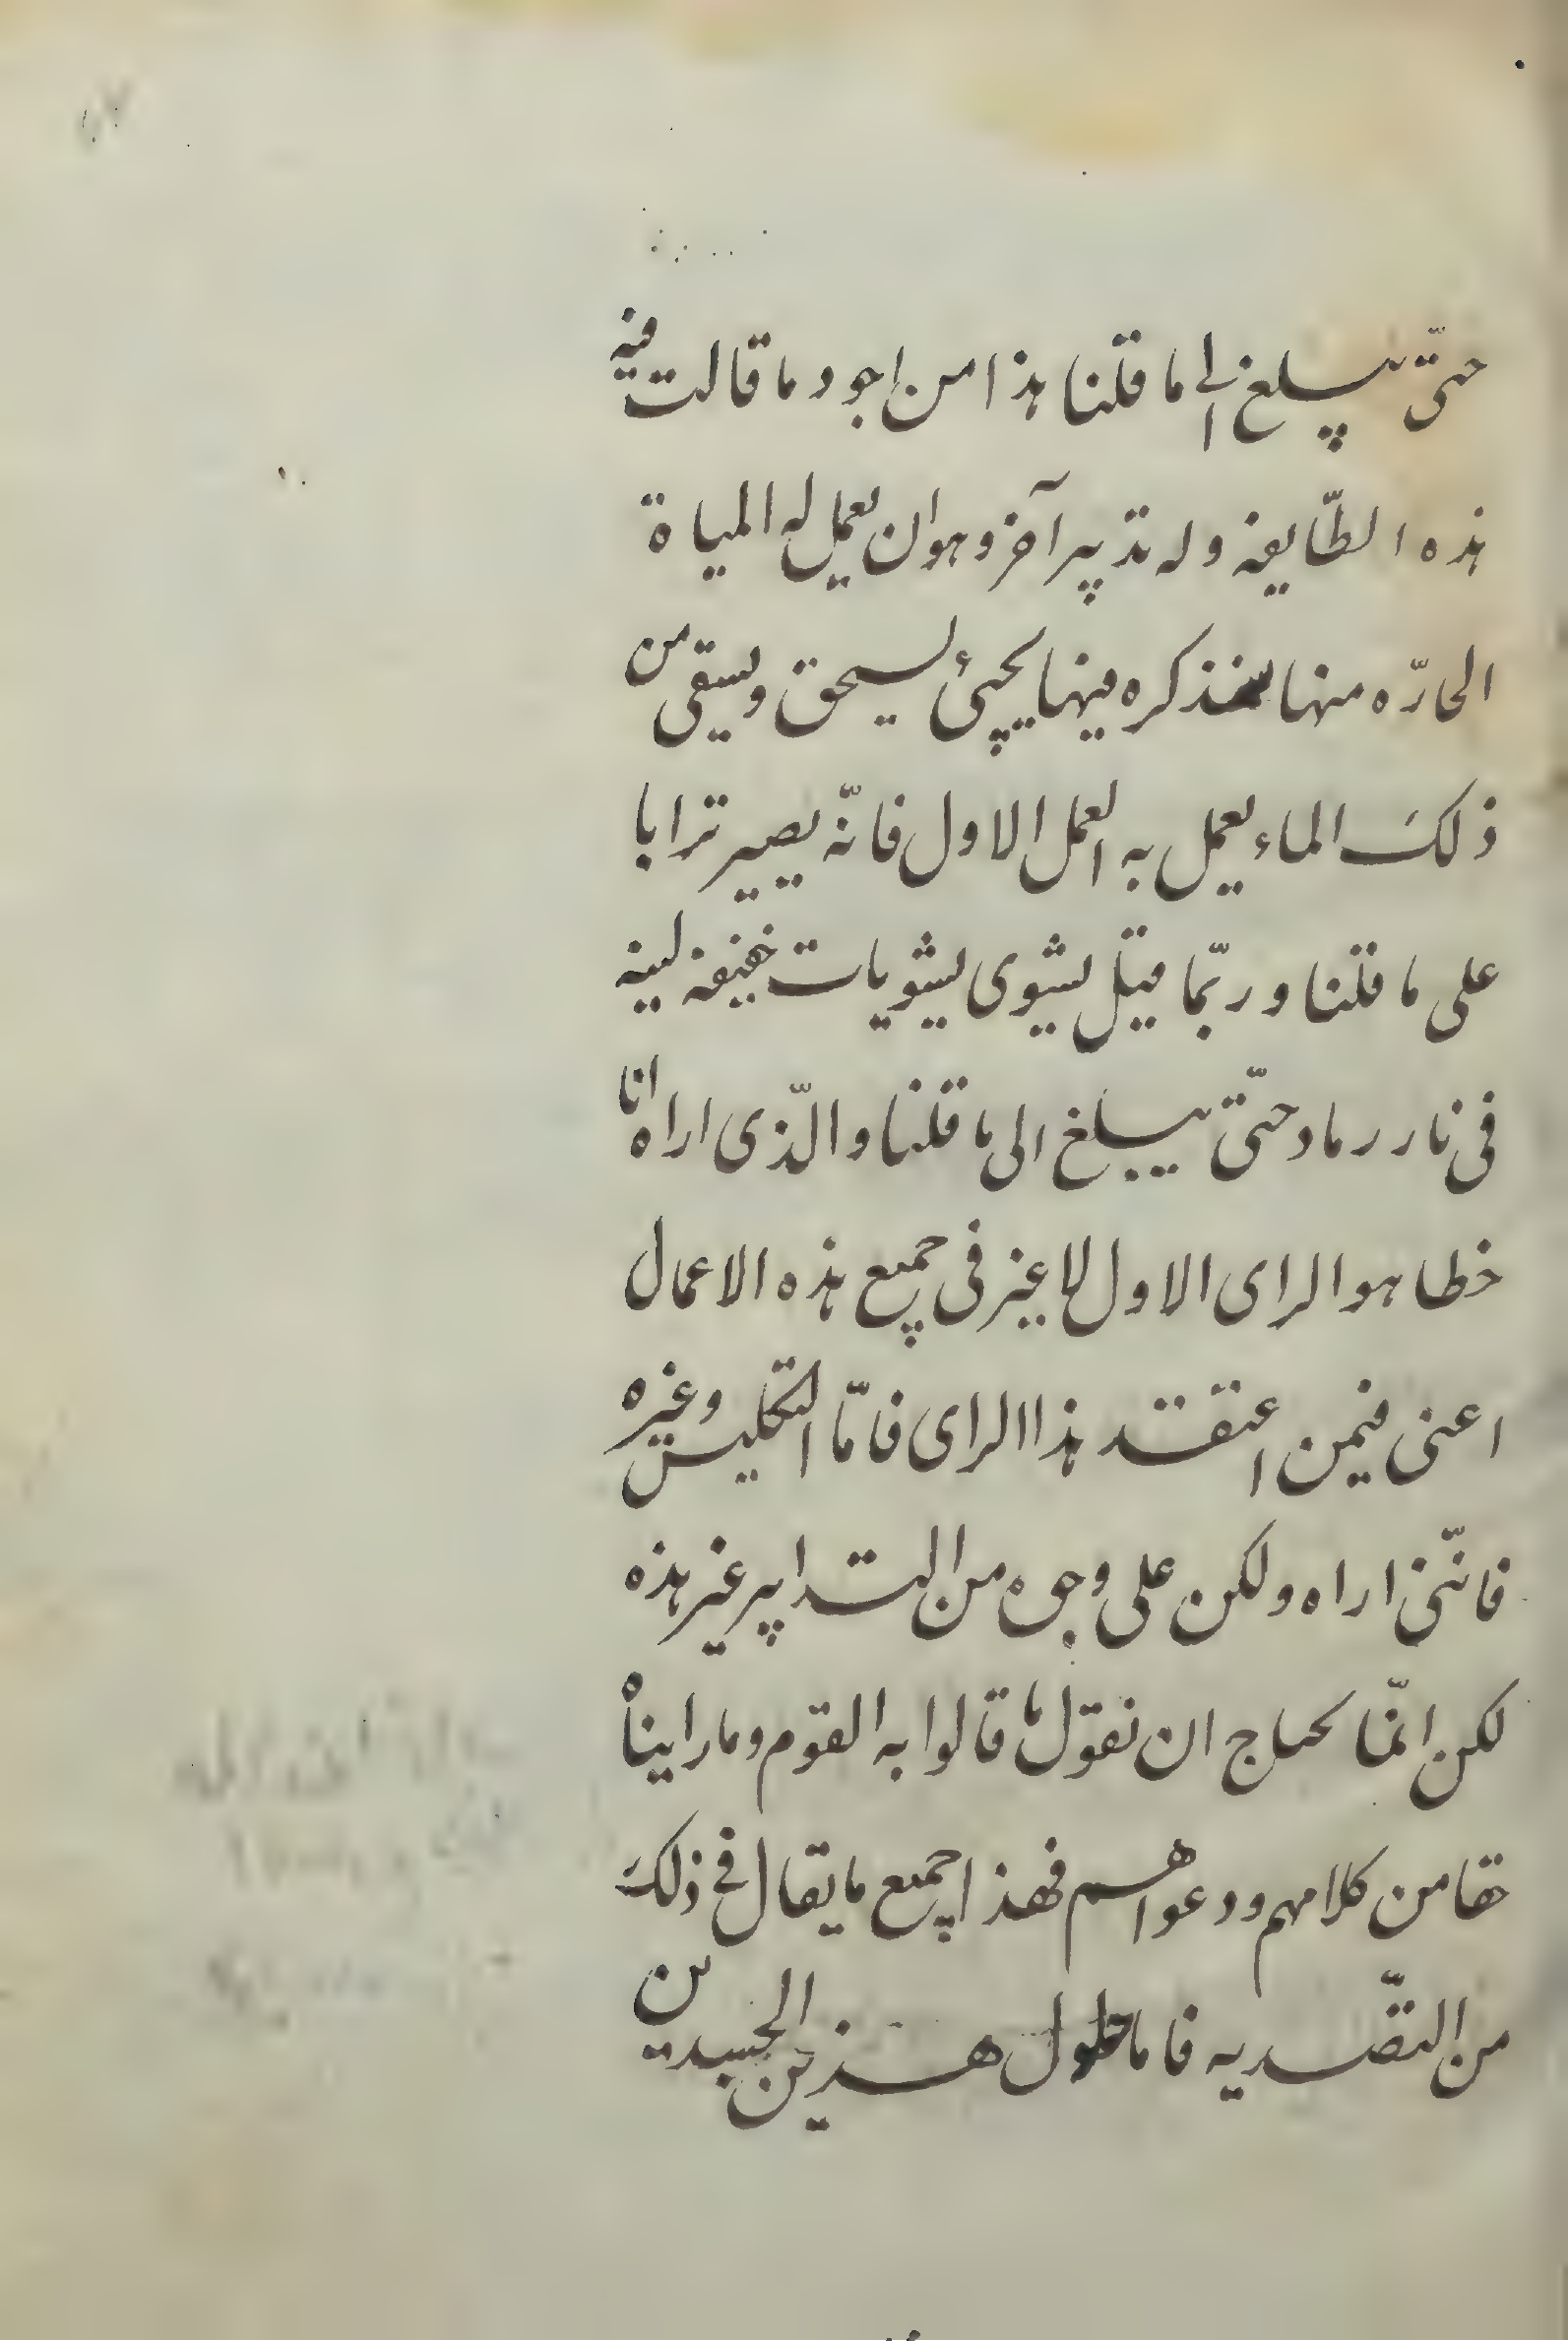 حتّى يبلغ الى ما قلنا هذا من اجود ما قالت فيه
هذه الطّايفة وله تدبير آخر وهو ان يعمل له المياة
الحارّه منها سنذكره فيها يجيئ يسحق ويسقى من
ذلكَ الماء يعمل به العمل الاول فانّه يصير ترابا
على ما قلنا وربّما قيل يشوى يشويات خفيفة لينه
فى نار رماد حتّى يبلغ الى ما قلنا والّذى اراه انا
خطا هو الراى الاول لا غير فى جميع هذه الاعمال
اعنى فيمن اعتقد هذا الراى فامّا التكليس وغيره
فانّنى اراه ولكن على وجوه من التدابير غير هذه
لكن انّما نحتاج ان نقول ما قالوا به القوم وما رايناه
حقا من كلامهم ودعواهم فهذا جميع ما يقال فى ذلكَ
من التصّديه فاما حلول هذين الجسدين